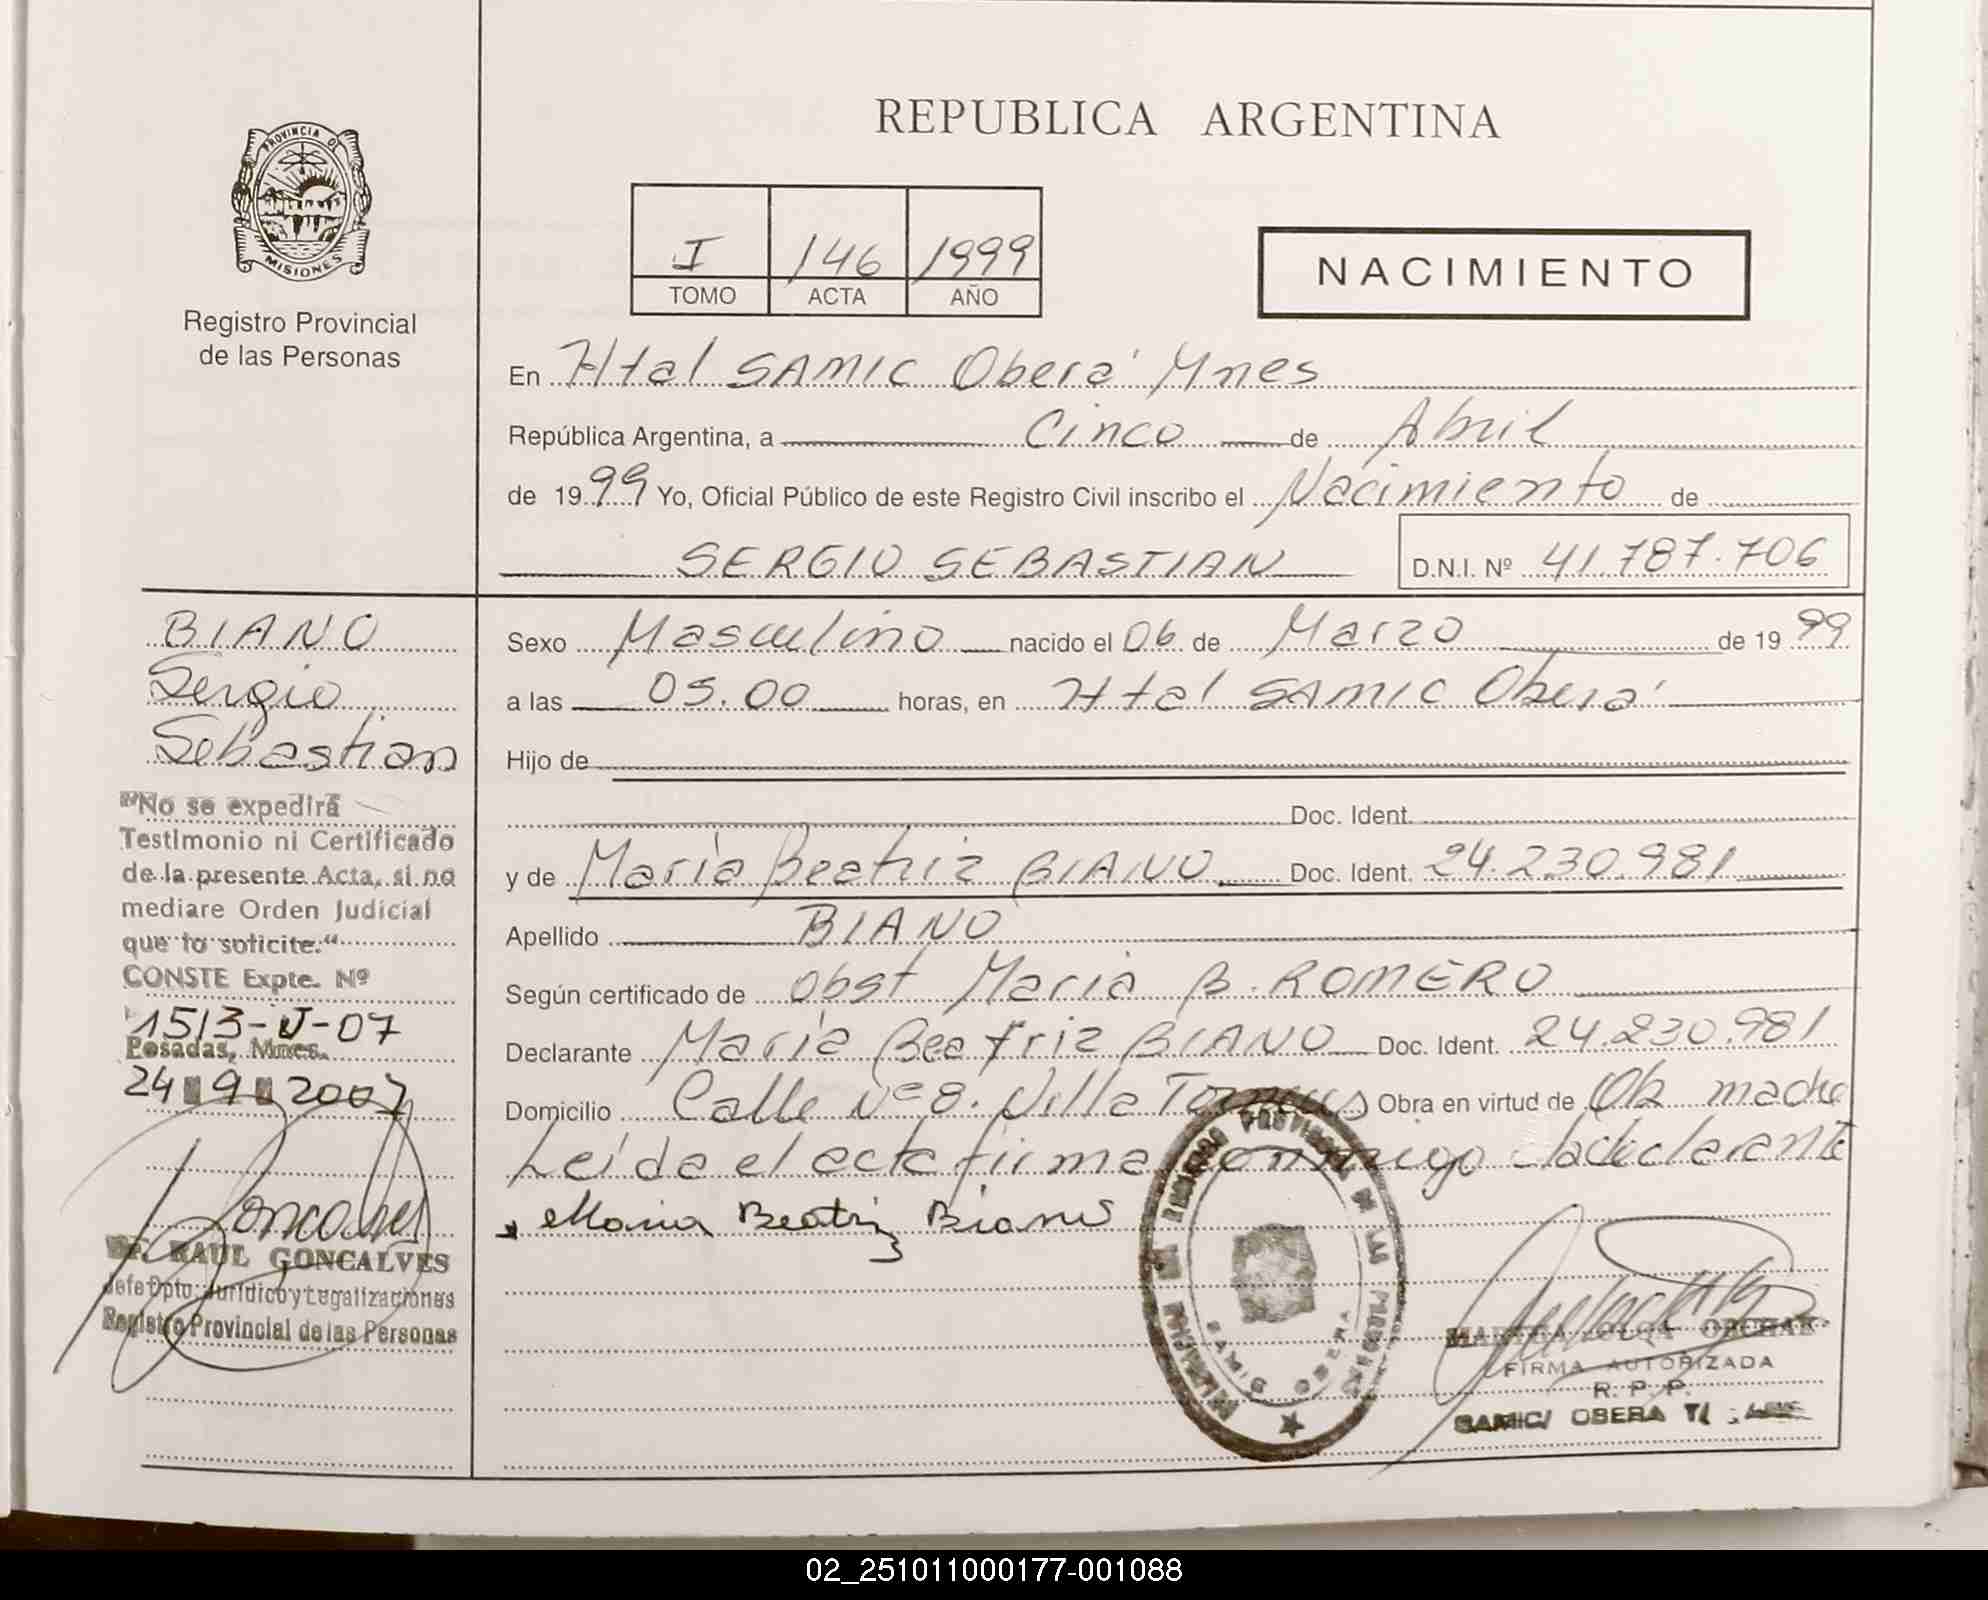 REPUBLICA ARGENTINA
PROVINCIA DE
MISIONES
Registro Provincial
de las Personas
I 146 1999
TOMO ACTA AÑO
NACIMIENTO
En Htal SAMIC Oberá Mnes
República Argentina, a Cinco de Abril
de 1999 Yo, Oficial Público de este Registro Civil inscribo el Nacimiento de
SERGIO SEBASTIAN D.N.I. Nº 41.787.706
BIANO
Sergio
Sebastian
"No se expedirá
Testimonio ni Certificado
de la presente Acta, si no
mediare Orden Judicial
que lo solicite."
CONSTE Expte. Nº
1513-J-07
Posadas, Mnes.
24 9 2007
Goncalves
RAUL GONCALVES
Jefe Dpto. Jurídico y Legalizaciones
Registro Provincial de las Personas
Sexo Masculino nacido el 06 de Marzo de 1999
a las 05.00 horas, en Htal SAMIC Oberá
Hijo de
Doc. Ident.
y de María Beatriz BIANO Doc. Ident. 24.230.981
Apellido BIANO
Según certificado de Obst María B. ROMERO
Declarante María Beatriz BIANO Doc. Ident. 24.230.981
Domicilio Calle Nº 8. Villa Obra en virtud de madre
Leída el acta firma conmigo la declarante
Maria Beatriz Biano
REGISTRO PROVINCIAL DE LAS PERSONAS
SAMIC OBERA
MARTHA OLGA
FIRMA AUTORIZADA
R. P. P.
SAMIC/ OBERA
02_251011000177-001088